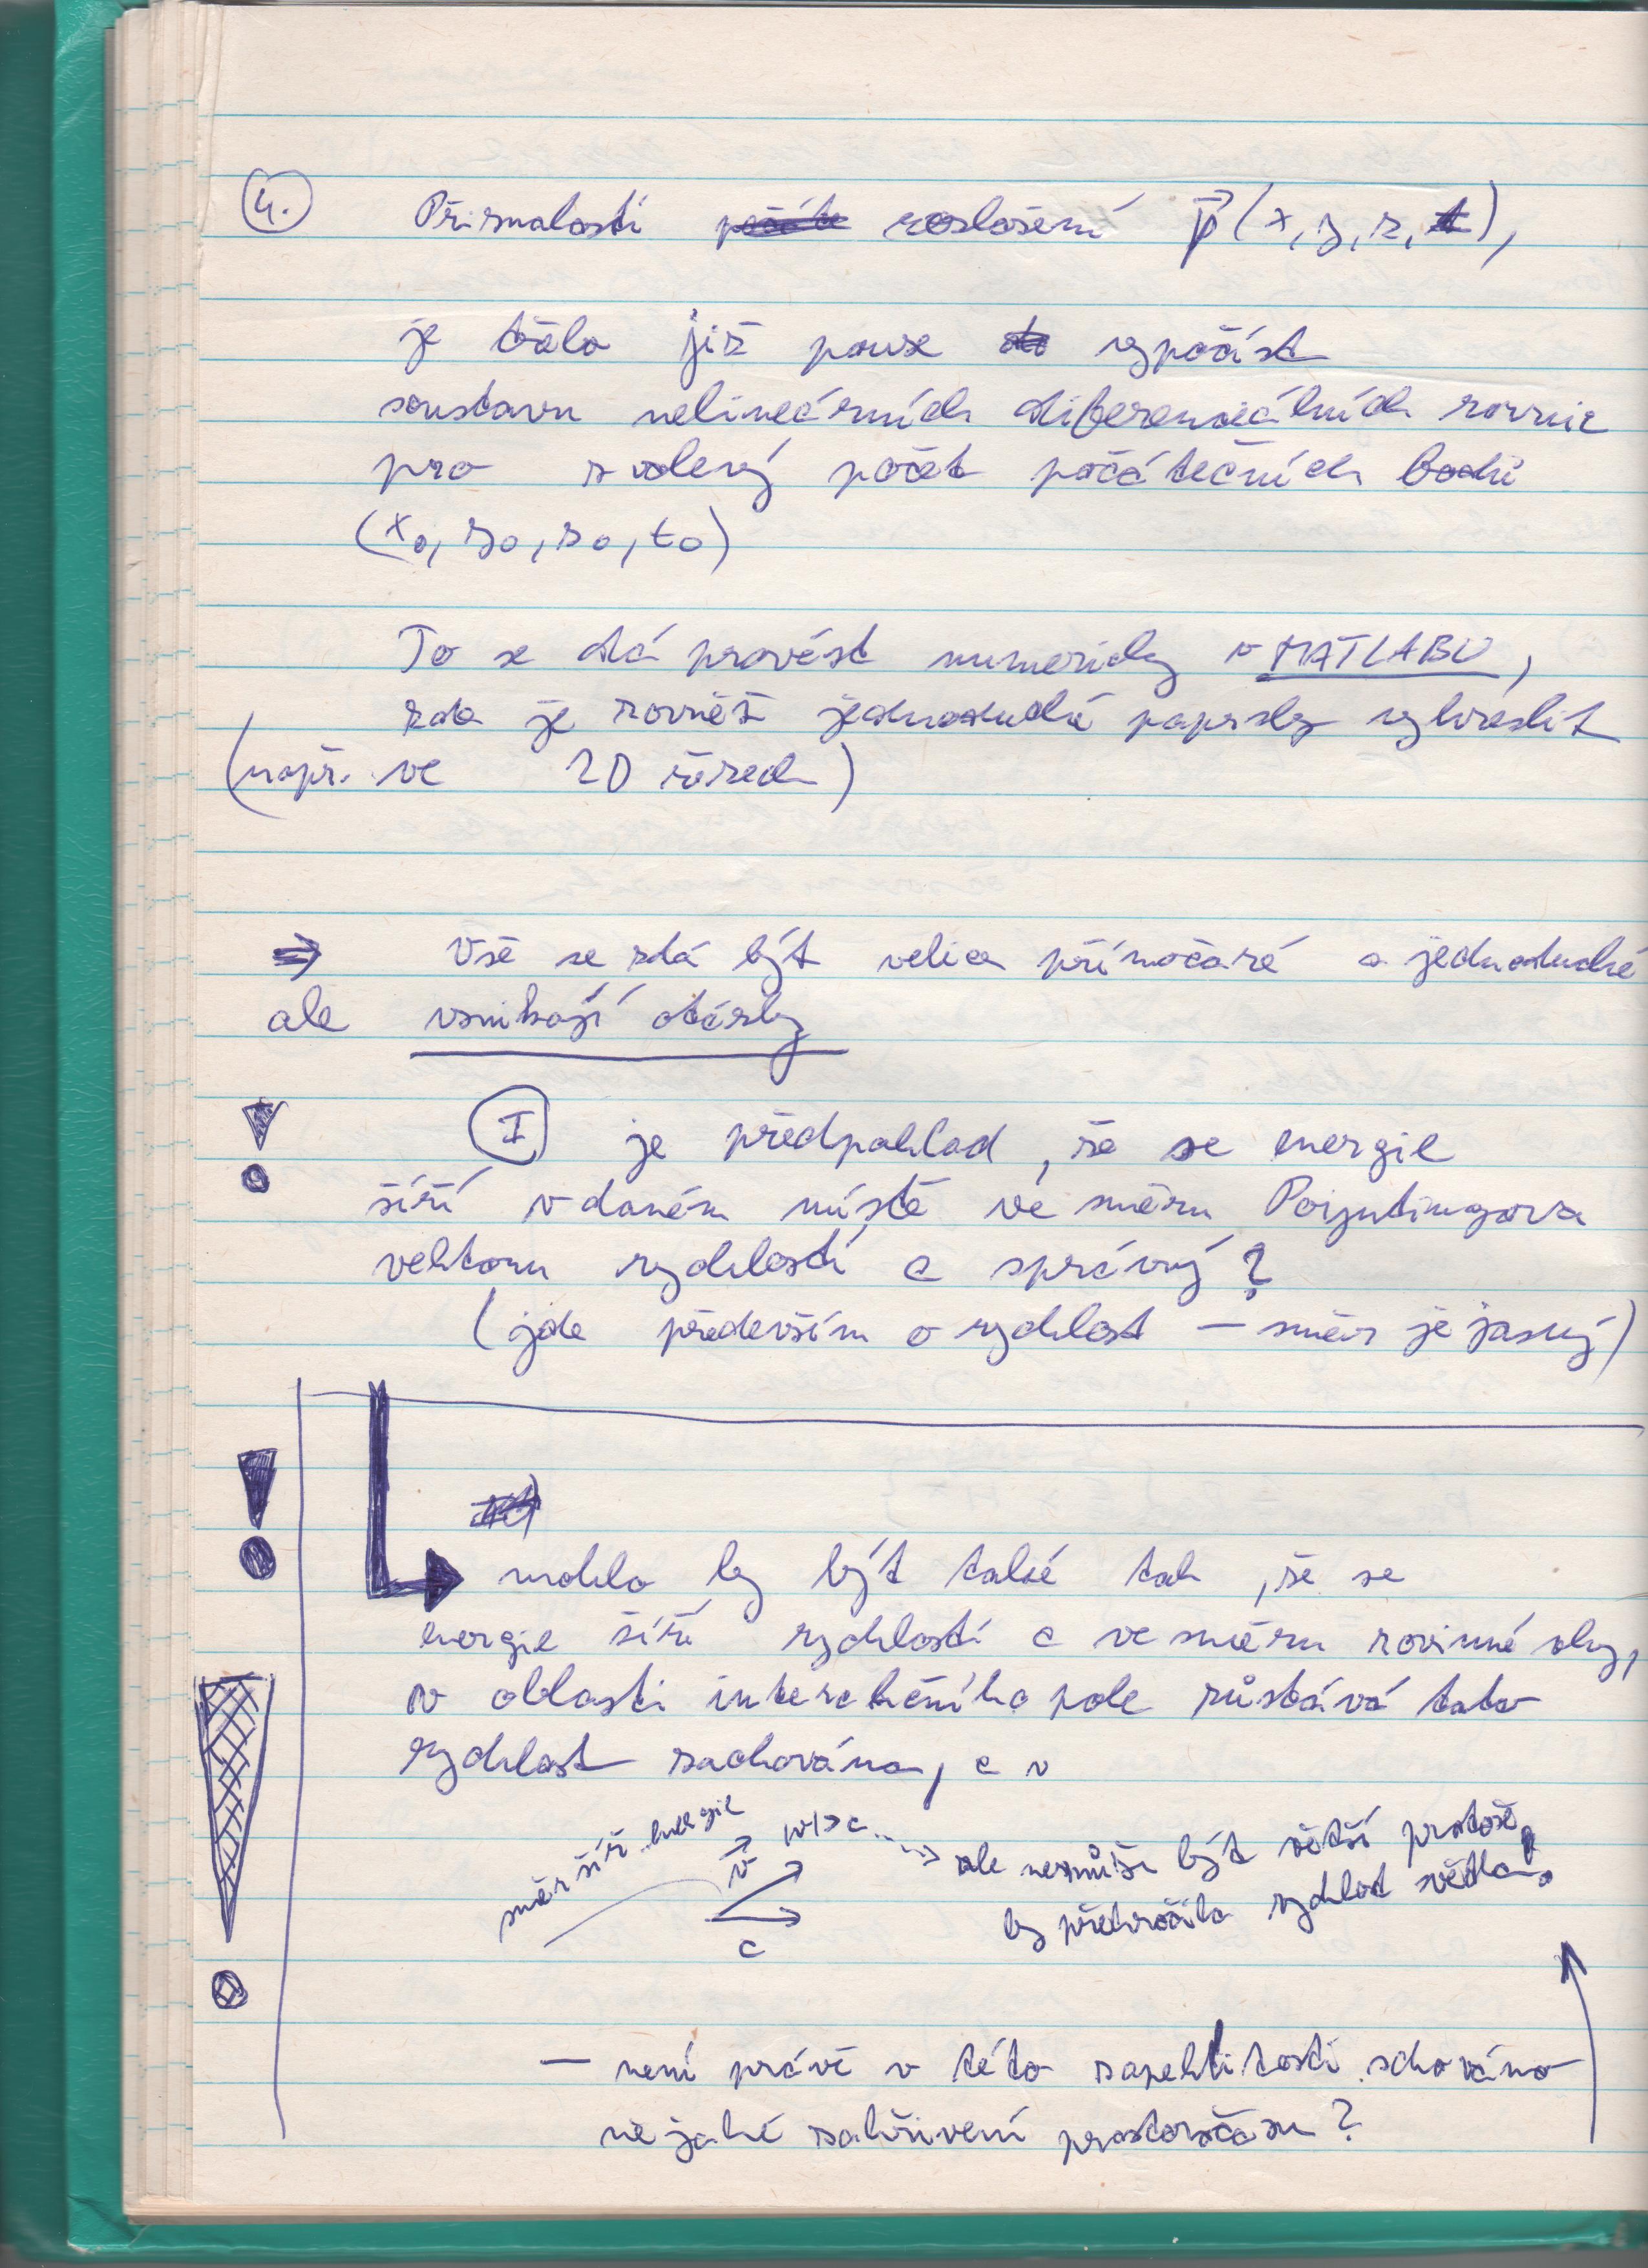 4. Při znalosti rozložení p⃗(x,y,z,t),
je třeba již pouze vypočíst
soustavu nelineárních diferenciálních rovnic
pro zvolený počet počátečních bodů
(x₀, y₀, z₀, t₀)
To se dá provést numericky v MATLABU,
kde je rovněž jednoduché paprsky vykreslit
(např. ve 2D řezech)
⇒ Vše se zdá být velice přímočaré a jednoduché
ale vznikají otázky
! I je předpoklad, že se energie
šíří v daném místě ve směru Poyntingova
vektoru rychlostí c správný?
(jde především o rychlost — směr je jasný)
! mohlo by být také tak, že se
energie šíří rychlostí c ve směru rovinné vlny,
v oblasti interakčního pole zůstává tato
! rychlost zachována, a v
směr šíř. energie v⃗ |v|>c ⇢ ale nemůže být větší protože
by překročila rychlost světla!
c
— není právě v této zapeklitosti schováno
nějaké zakřivení prostoročasu?